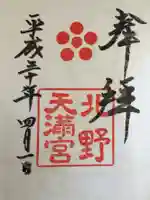 奉拝
北野
天満宮
平成三十年四月一日